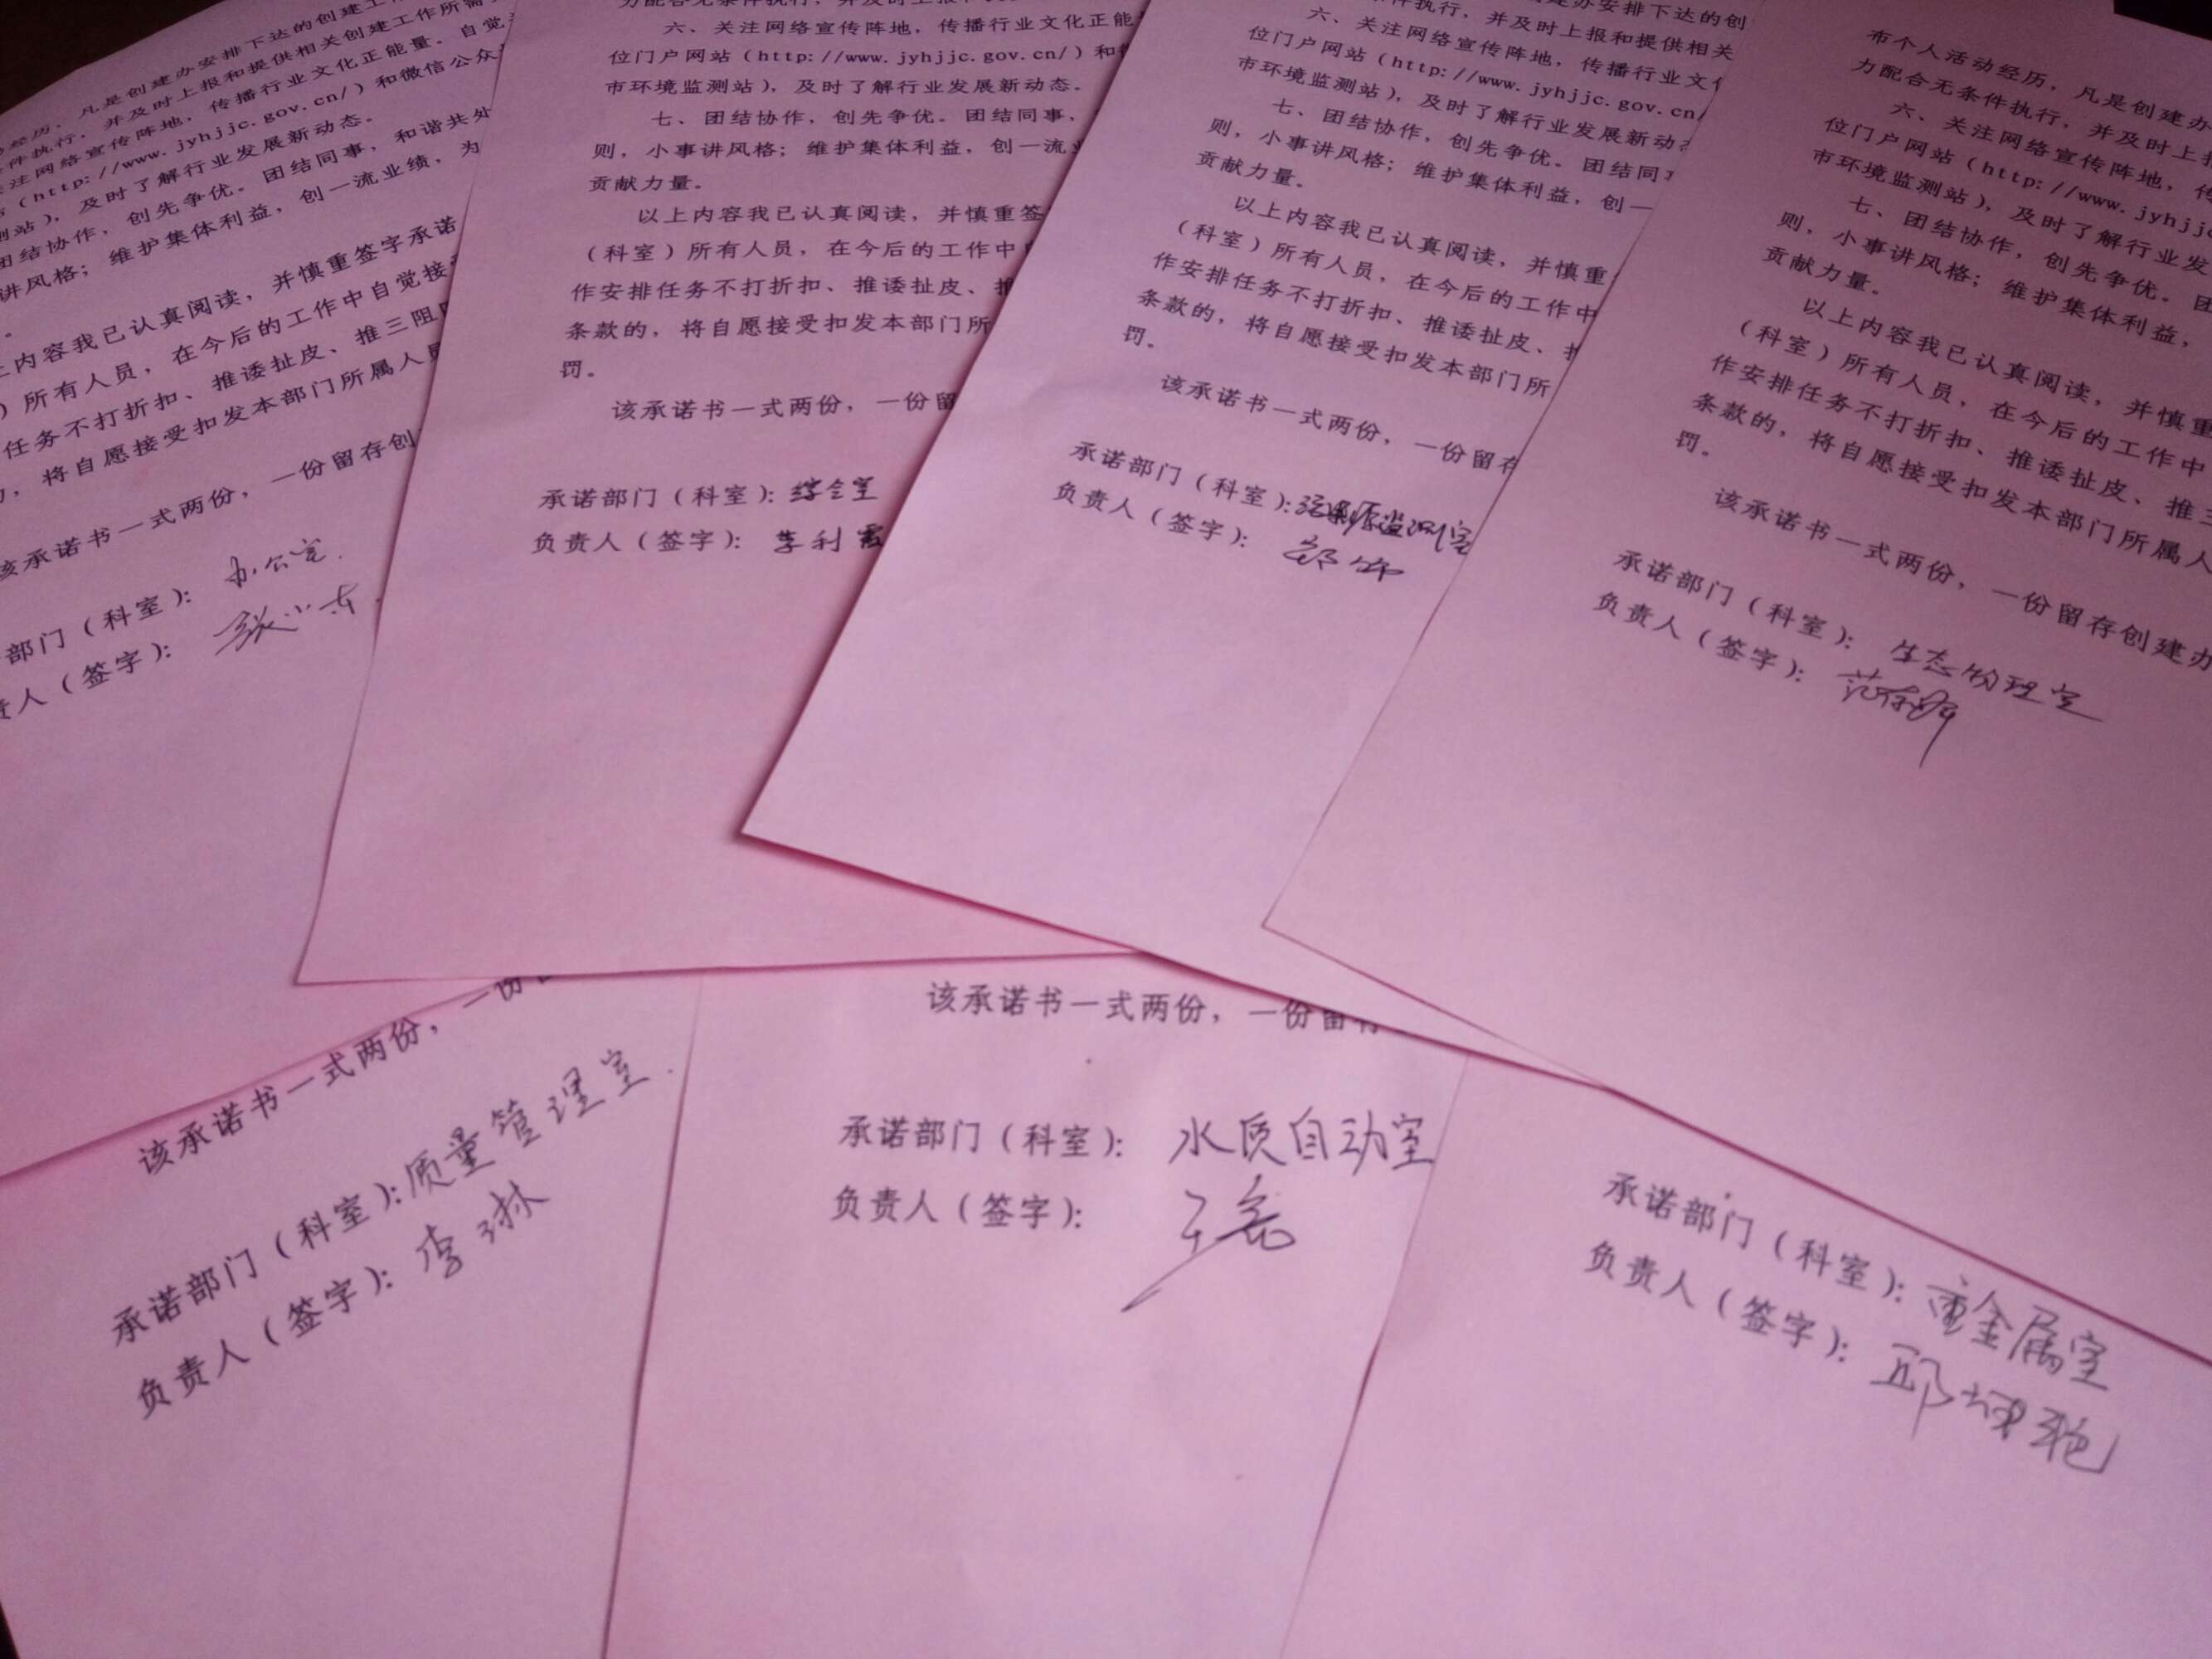 经历，凡是创建办安排下达的创建工
件执行，并及时上报和提供相关创建工作所需
关注网络宣传阵地，传播行业文化正能量。自觉
（http://www.jyhjjc.gov.cn/）和微信公众
测站），及时了解行业发展新动态。
团结协作，创先争优。团结同事，和谐共处
讲风格；维护集体利益，创一流业绩，为
。
上内容我已认真阅读，并慎重签字承诺
）所有人员，在今后的工作中自觉接
任务不打折扣、推诿扯皮、推三阻
，将自愿接受扣发本部门所属人员
该承诺书一式两份，一份留存创
部门（科室）：办公室
责人（签字）：张小东
六、关注网络宣传阵地，传播行业文化正能
位门户网站（http://www.jyhjjc.gov.cn/）和
市环境监测站），及时了解行业发展新动态。
七、团结协作，创先争优。团结同事，
则，小事讲风格；维护集体利益，创一流
贡献力量。
以上内容我已认真阅读，并慎重签
（科室）所有人员，在今后的工作中
作安排任务不打折扣、推诿扯皮、推
条款的，将自愿接受扣发本部门所
罚。
该承诺书一式两份，一份留
承诺部门（科室）：综合室
负责人（签字）：李利霞
件执行，并及时上报和提供相关
六、关注网络宣传阵地，传播行业文
位门户网站（http://www.jyhjjc.gov.cn/
市环境监测站），及时了解行业发展新动
七、团结协作，创先争优。团结同
则，小事讲风格；维护集体利益，创一
贡献力量。
以上内容我已认真阅读，并慎重
（科室）所有人员，在今后的工作中
作安排任务不打折扣、推诿扯皮、
条款的，将自愿接受扣发本部门所
罚。
该承诺书一式两份，一份留存
承诺部门（科室）：污染源监测室
负责人（签字）：
布个人活动经历，凡是创建办
力配合无条件执行，并及时上报
六、关注网络宣传阵地，传
位门户网站（http://www.jyhjj
市环境监测站），及时了解行业发
七、团结协作，创先争优。团
则，小事讲风格；维护集体利益，
贡献力量。
以上内容我已认真阅读，并慎重
（科室）所有人员，在今后的工作中
作安排任务不打折扣、推诿扯皮、推三
条款的，将自愿接受扣发本部门所属人
罚。
该承诺书一式两份，一份留存创建办
承诺部门（科室）：生态物理室
负责人（签字）：
该承诺书一式两份，一份
承诺部门（科室）：质量管理室
负责人（签字）：李琳
该承诺书一式两份，一份留存
承诺部门（科室）：水质自动室
负责人（签字）：
承诺部门（科室）：重金属室
负责人（签字）：邱